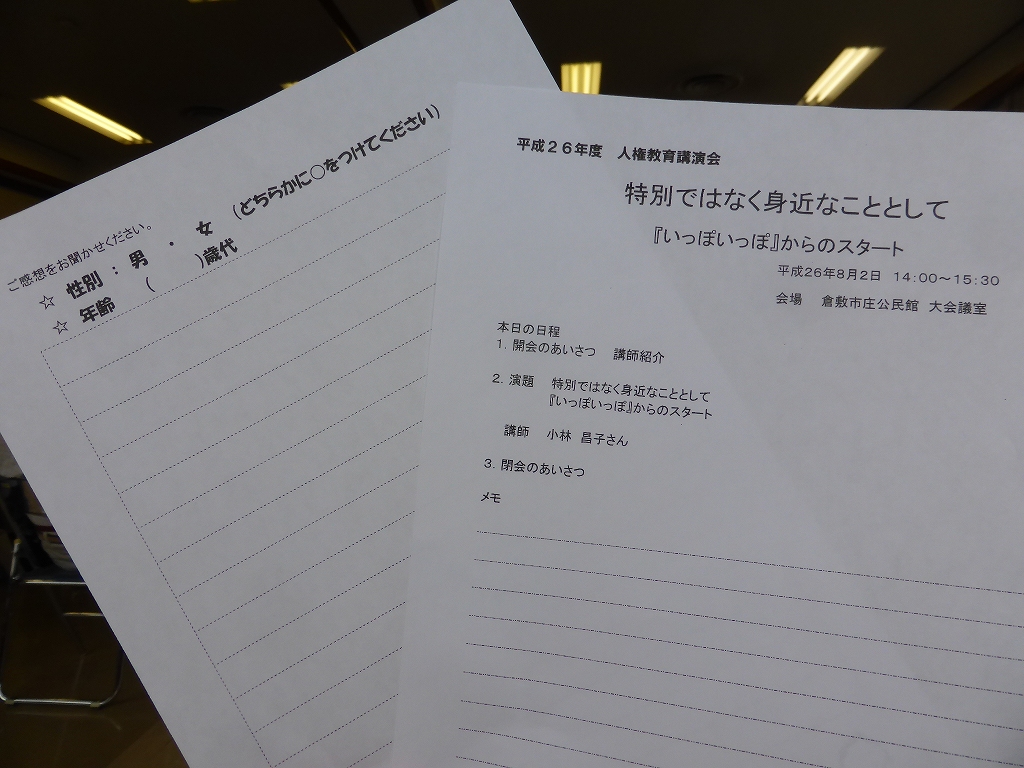 ご感想をお聞かせください。
☆ 性別 : 男 ・ 女 (どちらかに○をつけてください)
☆ 年齢 ( )歳代
平成26年度 人権教育講演会
特別ではなく身近なこととして
『いっぽいっぽ』からのスタート
平成26年8月2日 14:00～15:30
会場 倉敷市庄公民館 大会議室
本日の日程
1. 開会のあいさつ 講師紹介
2. 演題 特別ではなく身近なこととして
『いっぽいっぽ』からのスタート
講師 小林 昌子さん
3. 閉会のあいさつ
メモ